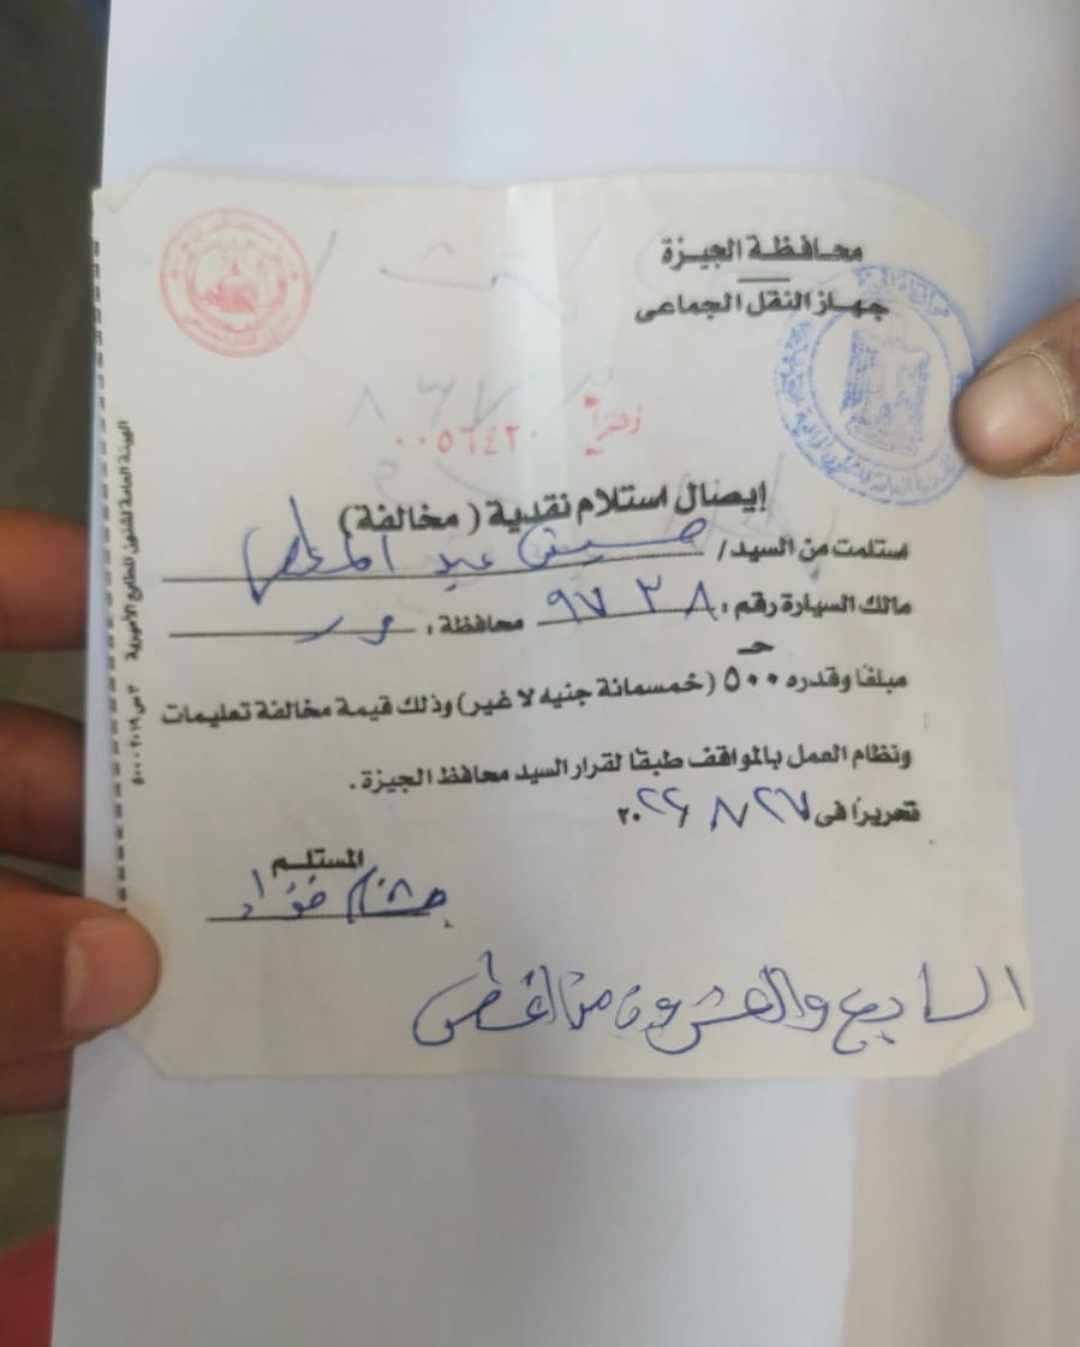 محافظة الجيزة
جهاز النقل الجماعى
٠٠٥٦٤٢٠
إيصال استلام نقدية (مخالفة)
استلمت من السيد/ حسين عبد المعطى
مالك السيارة رقم: ٩٧٣٨ محافظة:
مبلغا وقدره ٥٠٠ (خمسمائة جنيه لا غير) وذلك قيمة مخالفة تعليمات
ونظام العمل بالمواقف طبقا لقرار السيد محافظ الجيزة.
تحريرا فى ٢٧/٨/٢٠٢٦
المستلم
هشام فؤاد
السابع والعشرون من اغسطس
الهيئة العامة لشئون المطابع الأميرية